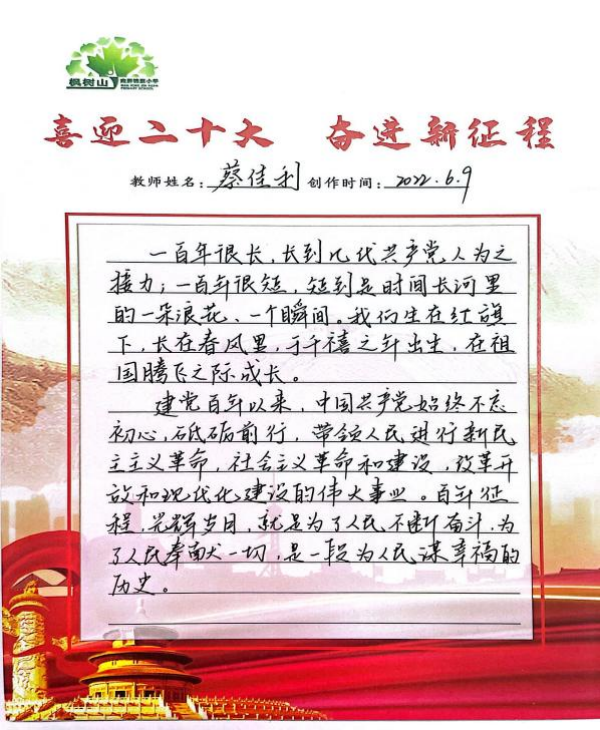 枫树山
喜迎二十大 奋进新征程
教师姓名：蔡佳利 创作时间：2022.6.9
一百年很长，长到几代共产党人为之
接力；一百年很短，短到是时间长河里
的一朵浪花、一个瞬间。我们生在红旗
下，长在春风里，于千禧之年出生，在祖
国腾飞之际成长。
建党百年以来，中国共产党始终不忘
初心，砥砺前行，带领人民进行新民
主主义革命，社会主义革命和建设，改革开
放和现代化建设的伟大事业。百年征
程，光辉岁月，就是为了人民不断奋斗，为
了人民奉献一切，是一段为人民谋幸福的
历史。